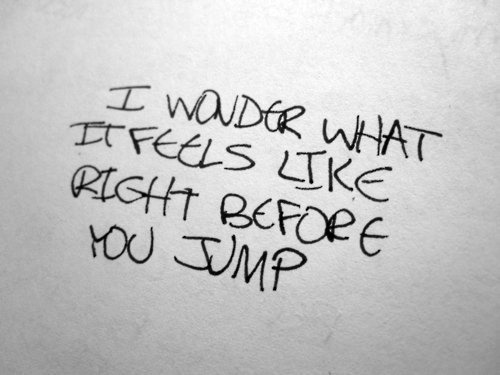 I WONDER WHAT
IT FEELS LIKE
RIGHT BEFORE
YOU JUMP